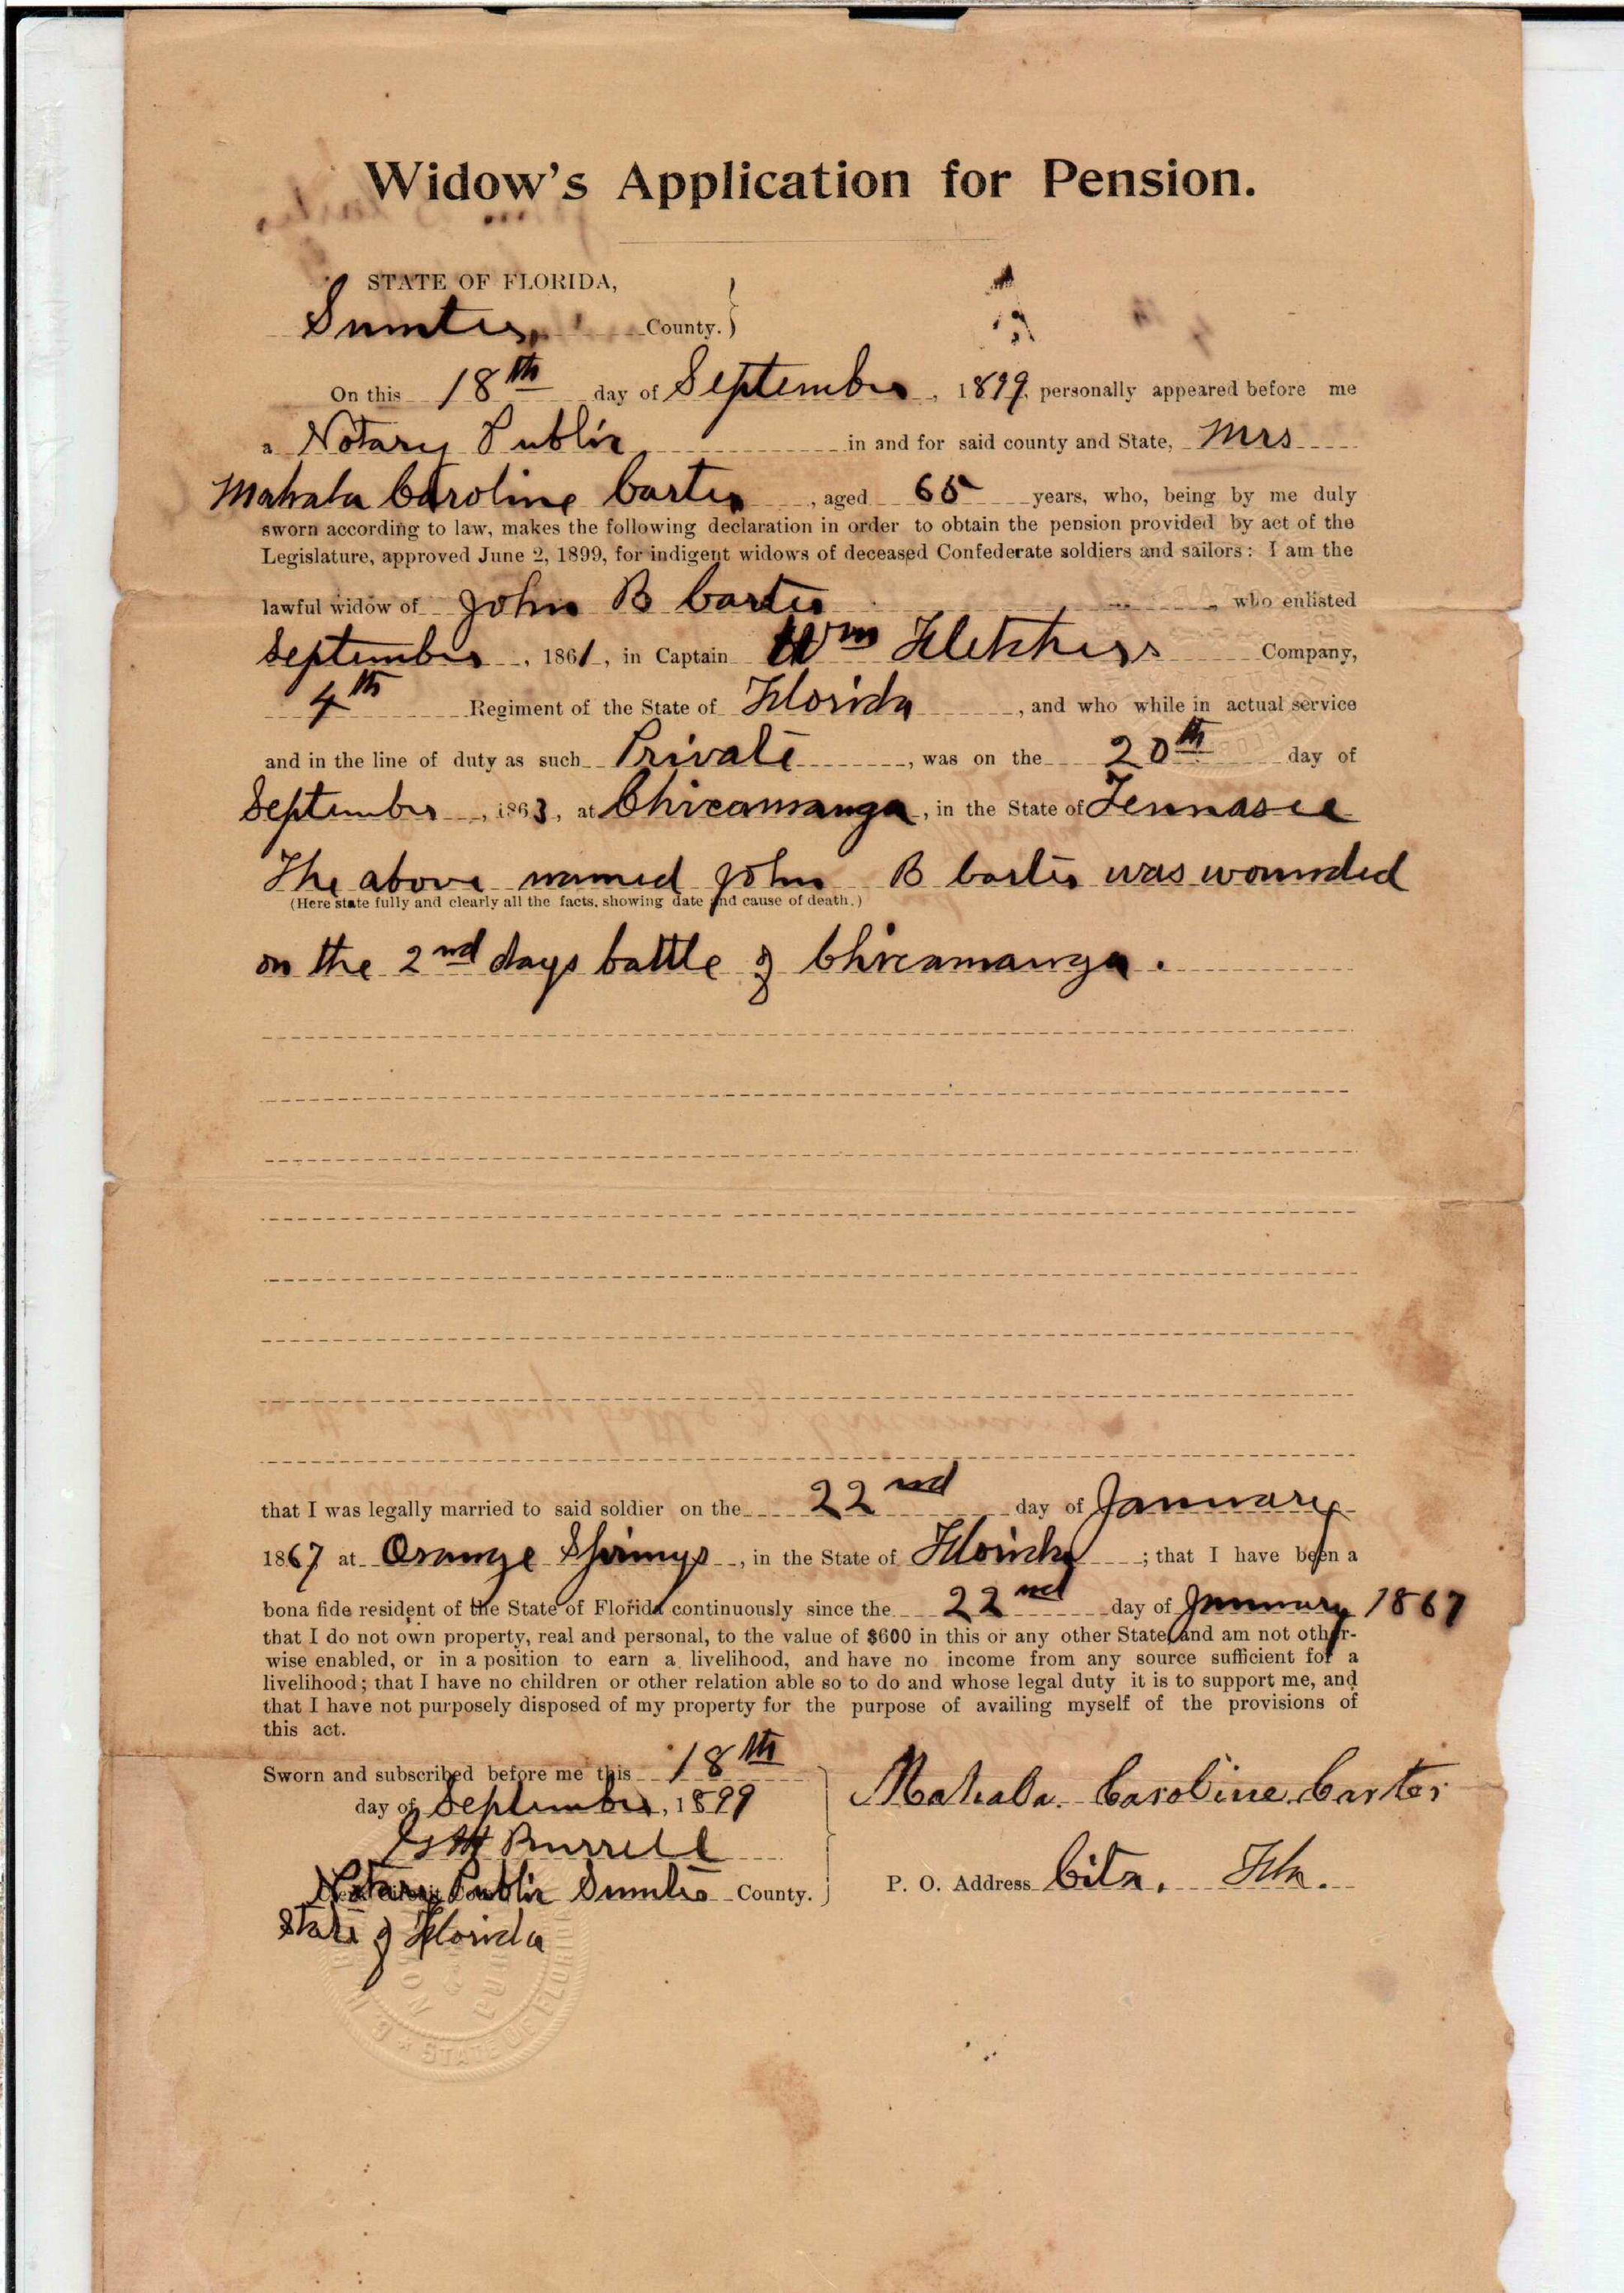 Widow's Application for Pension.
STATE OF FLORIDA,
Sumter County.
On this 18th day of September, 1899, personally appeared before me
a Notary Public in and for said county and State, Mrs
Mahala Caroline Carter, aged 65 years, who, being by me duly
sworn according to law, makes the following declaration in order to obtain the pension provided by act of the
Legislature, approved June 2, 1899, for indigent widows of deceased Confederate soldiers and sailors: I am the
lawful widow of John B Carter, who enlisted
September, 1861, in Captain Wm Fletchers Company,
4th Regiment of the State of Florida, and who while in actual service
and in the line of duty as such Private, was on the 20th day of
September, 1863, at Chicamauga, in the State of Tennasee
The above named John B Carter was wounded
(Here state fully and clearly all the facts, showing date and cause of death.)
on the 2nd days battle of Chicamauga.
that I was legally married to said soldier on the 22nd day of January
1867 at Orange Springs, in the State of Florida; that I have been a
bona fide resident of the State of Florida continuously since the 22nd day of January 1867
that I do not own property, real and personal, to the value of $600 in this or any other State, and am not other-
wise enabled, or in a position to earn a livelihood, and have no income from any source sufficient for a
livelihood; that I have no children or other relation able so to do and whose legal duty it is to support me, and
that I have not purposely disposed of my property for the purpose of availing myself of the provisions of
this act.
Sworn and subscribed before me this 18th
day of September, 1899
Burrell
Notary Public Sumter County.
State of Florida
Mahala. Caroline. Carter
P. O. Address Fla.
STATE OF FLORIDA